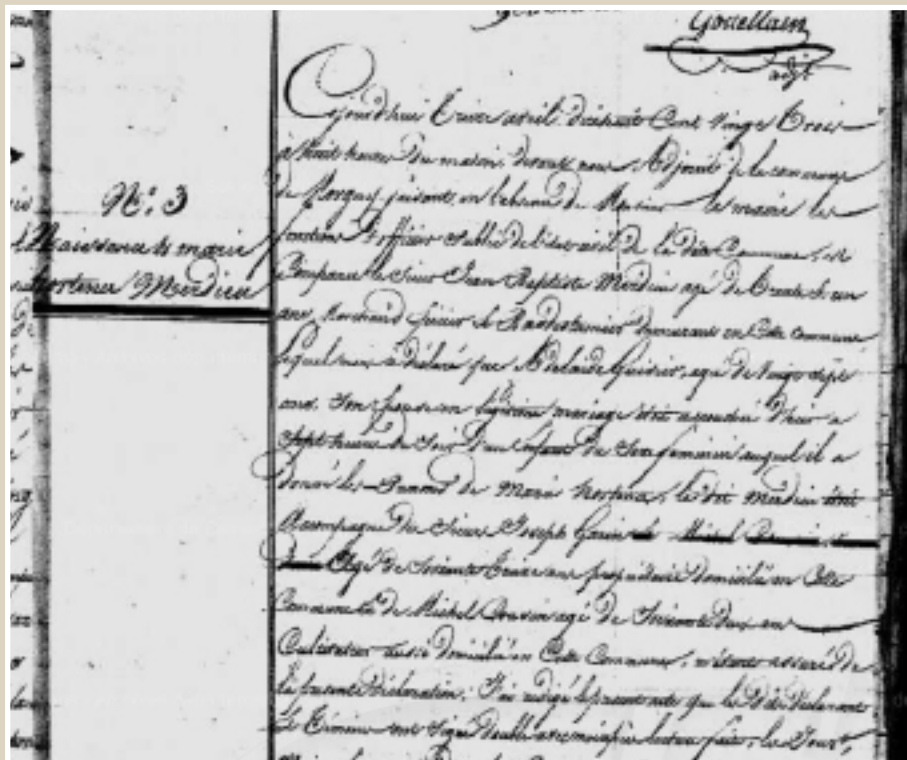 Gouellain
adjt
N°. 3
Naissance de marie
hortence Merdieu
Cejourd'hui treize avril dixhuit Cent Vingt Trois
à huit heures du matin devant nous Adjoint de la commune
de faisant en l'absence de Monsieur le maire les
fonctions d'officier Public de l'état civil de la dite Commune, est
Comparu le Sieur Jean Baptiste Merdieu agé de Trente & un
ans, Marchand & demeurant en Cette commune
lequel nous a déclaré que Adelaide agé de Vingt sept
ans, Son épouse en légitime mariage était accouchée d'hier a
Sept heures du Soir d'un Enfant du Sexe feminin auquel il a
donné les Prenoms de Marie hortence, le dit Merdieu était
Accompagné du Sieur Joseph
Agé de Soixante treize ans propriétaire domicilié en Cette
Commune & de Michel agé de Soixante deux ans
Cultivateur aussi domicilié en Cette Commune, m'étant assuré de
la présente Déclaration, J'ai rédigé le présent acte que les dits Déclarant
& Témoins ont Signé double avec moi après lecture faite, les Jour,